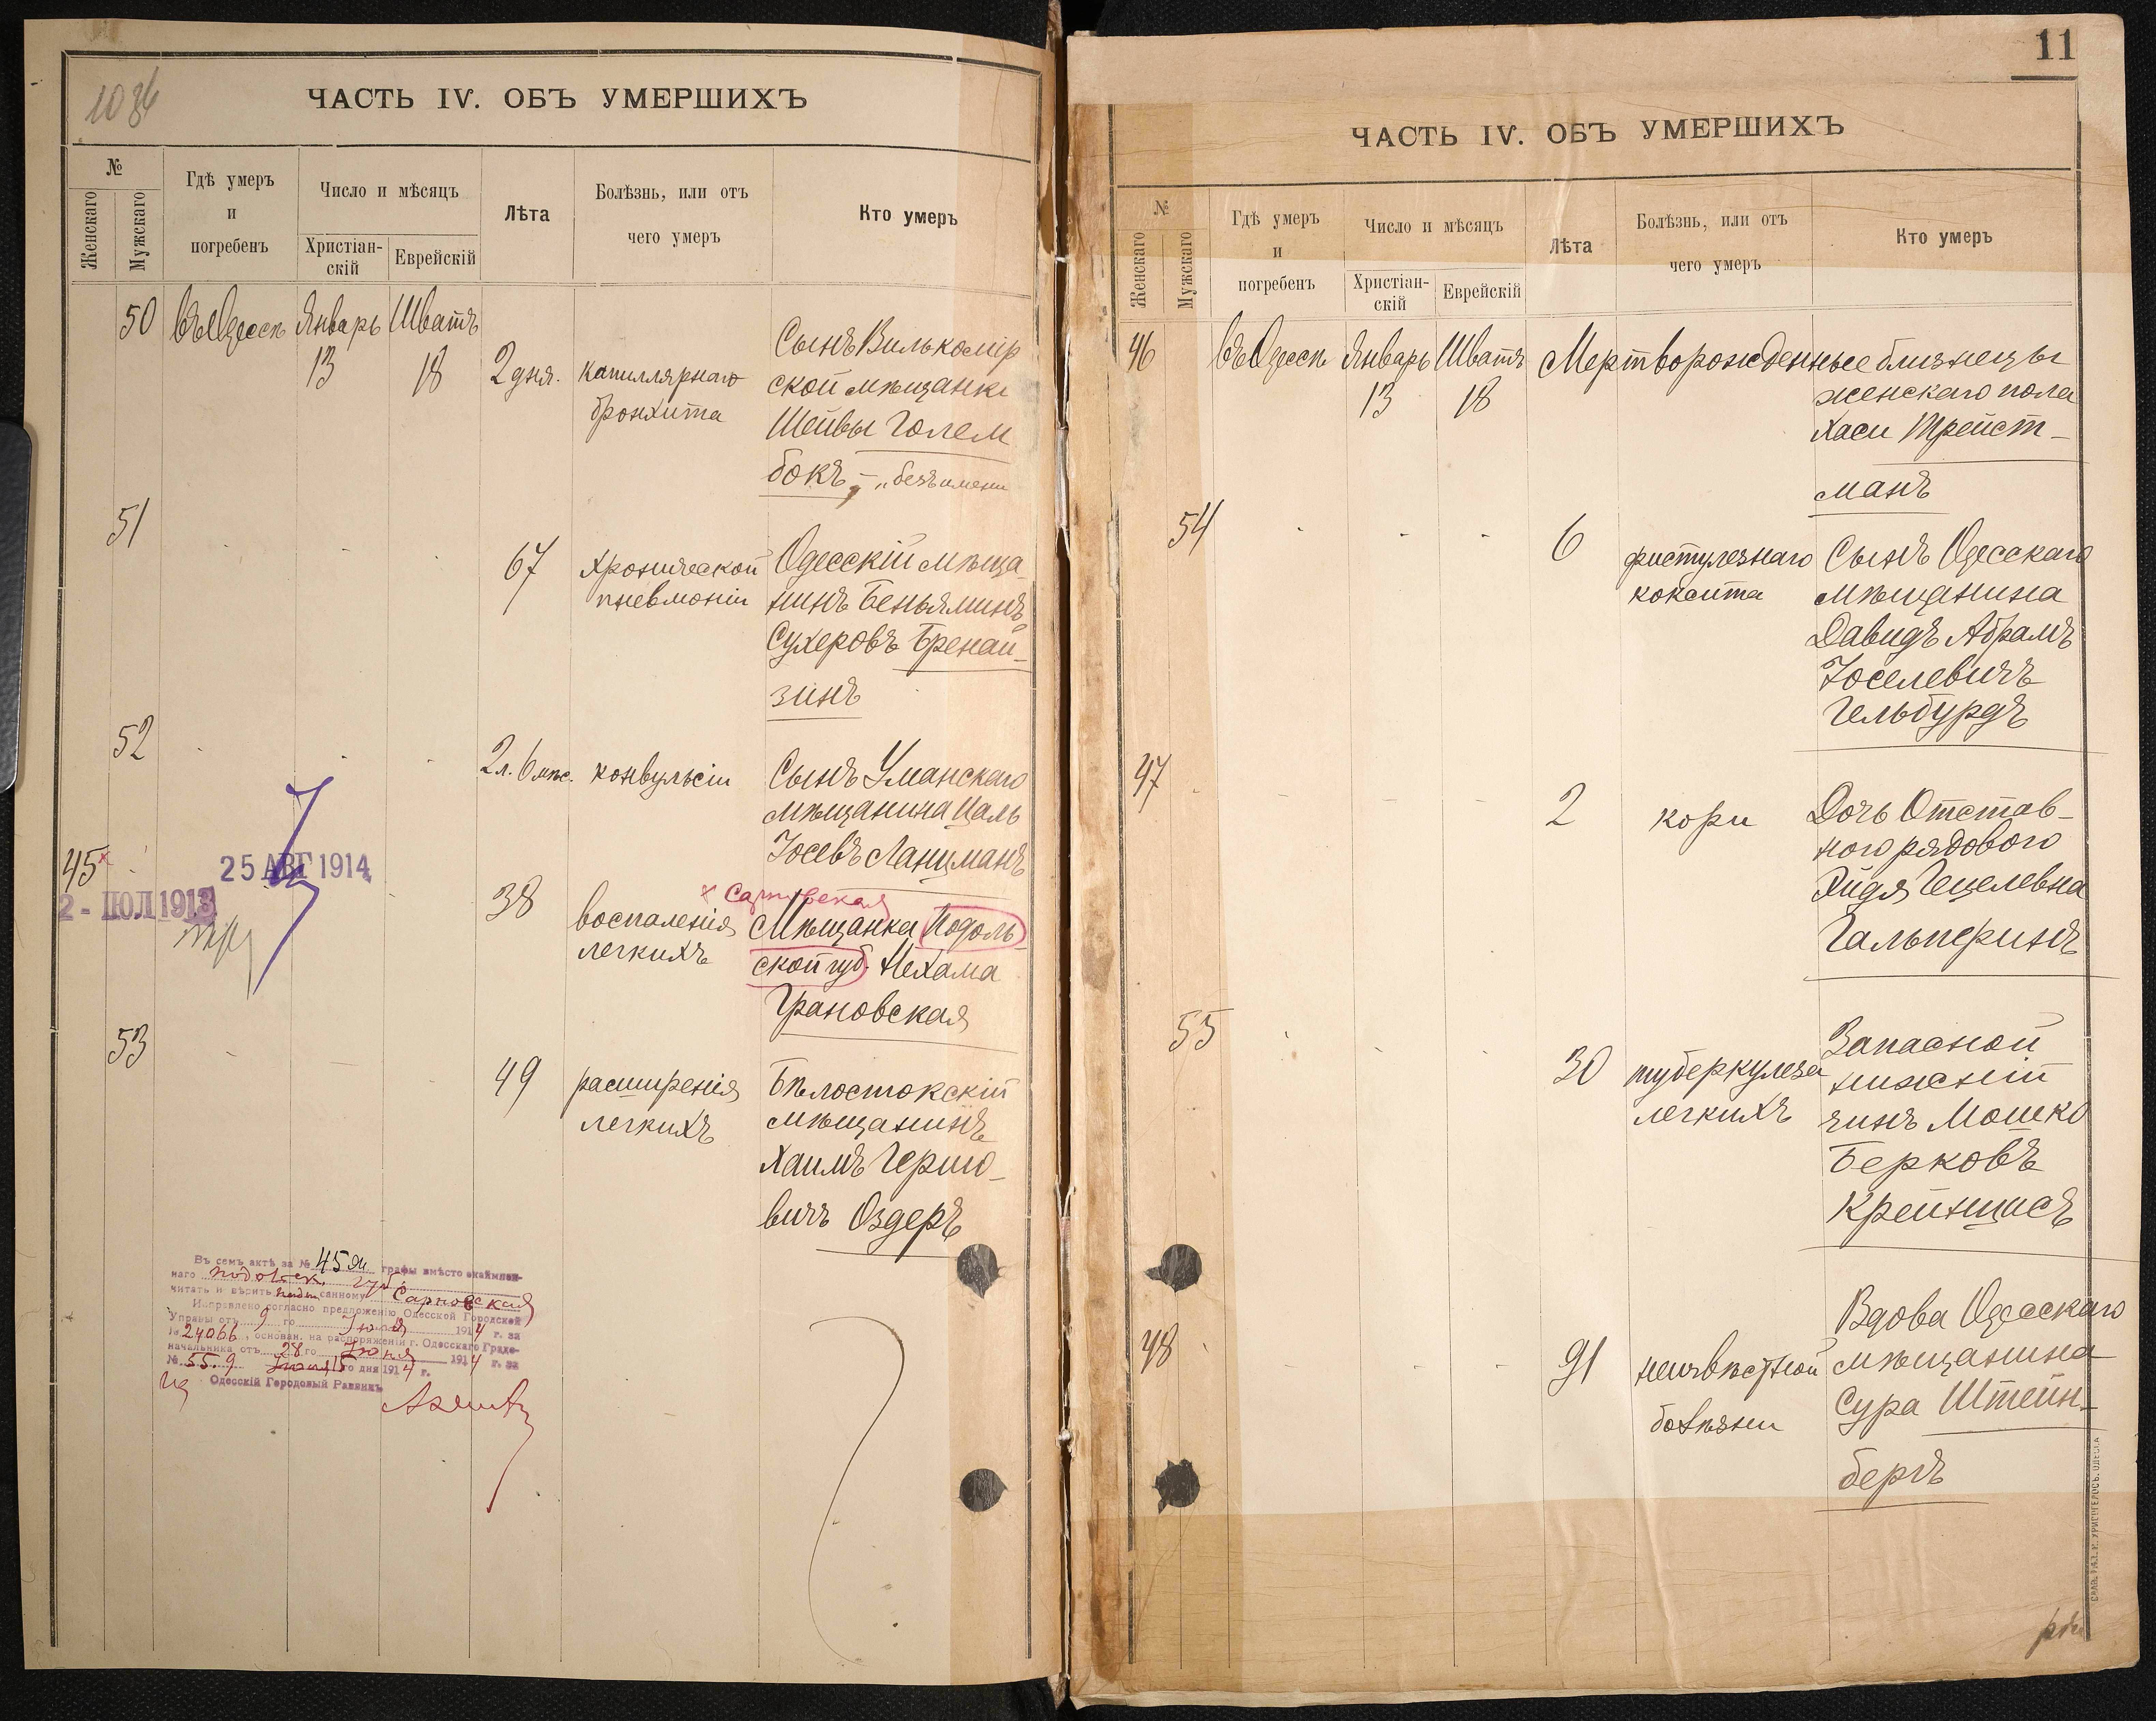 1036
ЧАСТЬ IV. ОБЪ УМЕРШИХЪ
№
Женскаго
Мужскаго
Гдѣ умеръ
и
погребенъ
Число и мѣсяцъ
Христіан-
скій
Еврейскій
Лѣта
Болѣзнь, или отъ
чего умеръ
Кто умеръ
50 въ Одессѣ Январь Шватъ
13 18 2 дня. капиллярнаго
бронхита
Сынъ Вилькомір
ской мѣщанки
Шейвы Голем
бокъ, - „безъ имени
51
67 хронической
пневмоніи
Одесскій мѣща-
нинъ Беньяминъ
Сухеровъ Бренай-
зинъ
52
2 л. 6 мѣс. конвульсіи
Сынъ Уманскаго
мѣщанина Цаль
Іосевъ Ланцманъ
45 ×
25 АВГ 1914
2 - ІЮЛ 1913
38 воспаленія
легкихъ
× Сарновская
Мѣщанка Подоль-
ской губ. Нехама
Грановская
53
49 расширенія
легкихъ
Бѣлостокскій
мѣщанинъ
Хаимъ Гершо-
вичъ Оздеръ
Въ семъ актѣ за № 45 графы вмѣсто окаймлен-
наго подольск. губ.
читать и вѣрить подписанному Сарновская
Исправлено согласно предложенію Одесской Городской
Управы отъ 9 го Іюля 1914 г. за
№ 24066, основан. на распоряженіи г. Одесскаго Градо-
начальника отъ 28 го Іюня 1914 г. за
№ 55.9 Іюля 15 го дня 1914 г.
Одесскій Городовый Раввинъ
11
ЧАСТЬ IV. ОБЪ УМЕРШИХЪ
№
Женскаго
Мужскаго
Гдѣ умеръ
и
погребенъ
Число и мѣсяцъ
Христіан-
скій
Еврейскій
Лѣта
Болѣзнь, или отъ
чего умеръ
Кто умеръ
46 въ Одессѣ Январь Шватъ Мертворожденные близнецы
13 18
женскаго пола
Хаси Трейст-
манъ
54
6 фистулезнаго
коксита
Сынъ Одесскаго
мѣщанина
Давидъ Абрамъ
Іоселевичъ
Гельбурдъ
47
2 кори
Дочь Отстав-
ного рядового
Хидя Гецелевна
Гальперинъ
55
30 туберкулеза
легкихъ
Запасной
нижній
чинъ Мошко
Берковъ
Крейншасъ
48
91 неизвѣстной
болѣзни
Вдова Одесскаго
мѣщанина
Сура Штейн-
бергъ